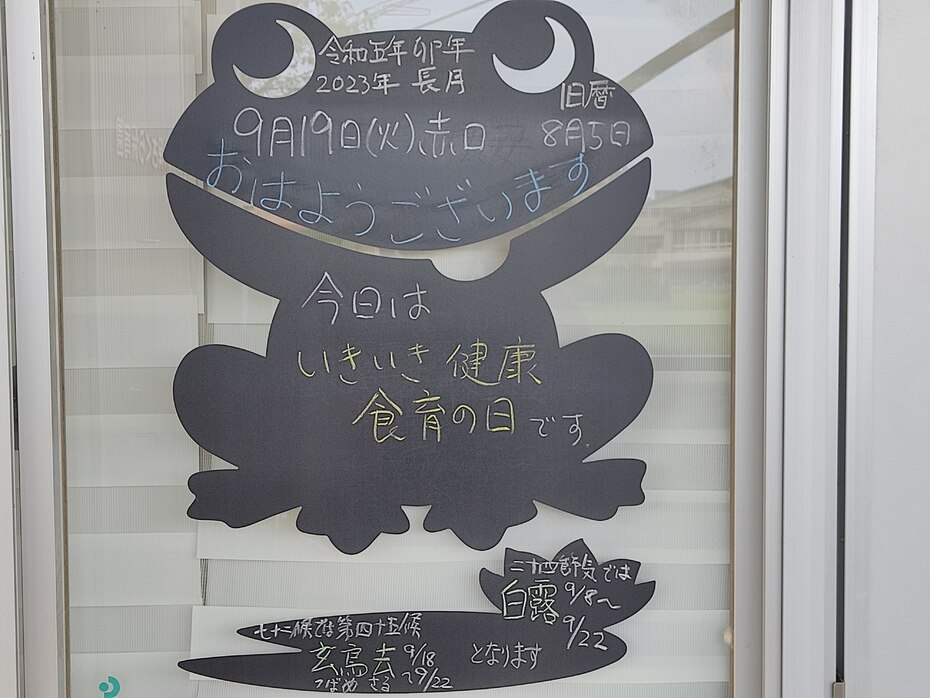 令和五年卯年
2023年 長月
旧暦
9月19日(火)赤口
8月5日
おはようございます
今日は
いきいき健康
食育の日です。
二十四節気では
白露 9/8〜
9/22
七十二候では第四十五候
玄鳥去 9/18
つばめ さる 〜9/22
となります